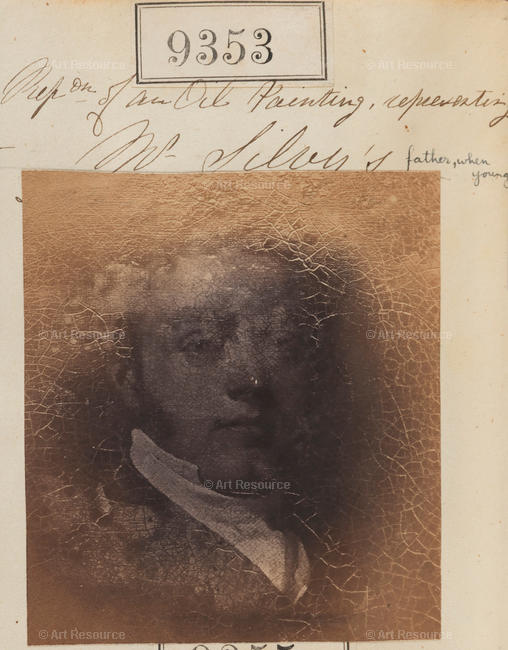 9353
Repon of an Oil Painting, representing
Mr Silver's father, when
young
© Art Resource © Art Resource © Art Resource
© Art Resource
© Art Resource © Art Resource
© Art Resource
© Art Resource © Art Resource